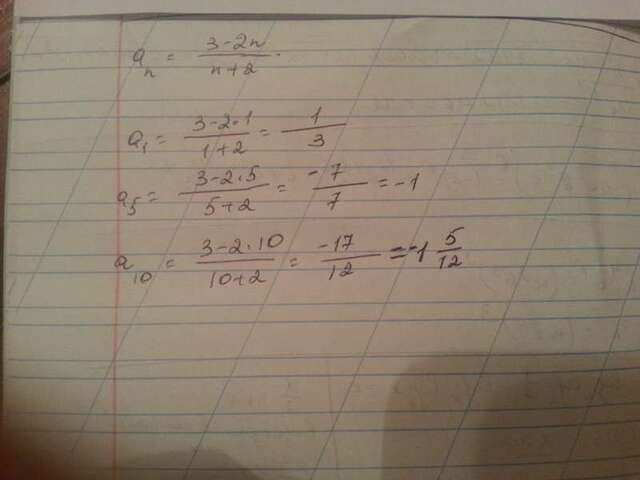 aₙ = (3-2n)/(n+2).
a₁ = (3-2·1)/(1+2) = 1/3
a₅ = (3-2·5)/(5+2) = -7/7 = -1
a₁₀ = (3-2·10)/(10+2) = -17/12 = -1 5/12